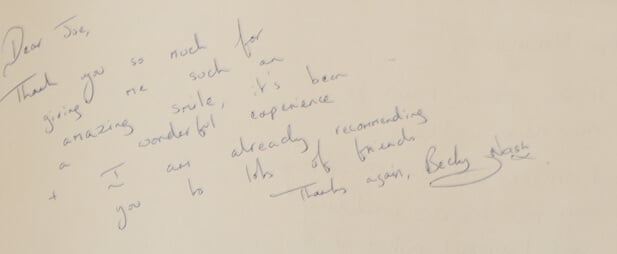 Dear Joe,
Thank you so much for
giving me such an
amazing smile, it's been
a wonderful experience
+ I am already recommending
you to lots of friends
Thanks again, Becky Nash